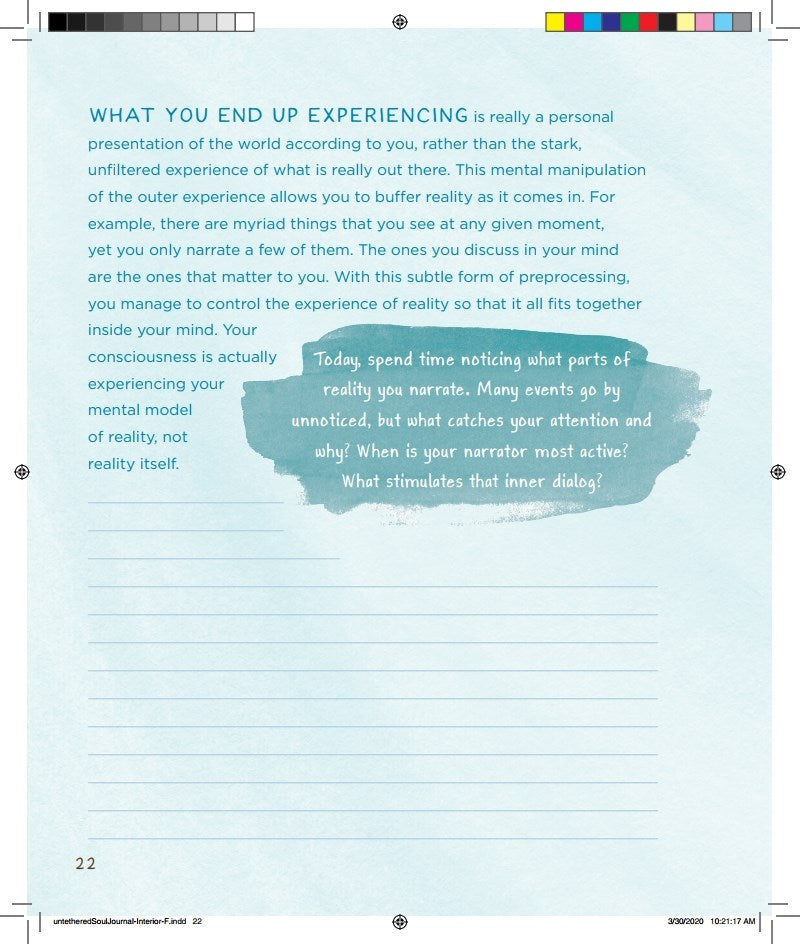 WHAT YOU END UP EXPERIENCING is really a personal
presentation of the world according to you, rather than the stark,
unfiltered experience of what is really out there. This mental manipulation
of the outer experience allows you to buffer reality as it comes in. For
example, there are myriad things that you see at any given moment,
yet you only narrate a few of them. The ones you discuss in your mind
are the ones that matter to you. With this subtle form of preprocessing,
you manage to control the experience of reality so that it all fits together
inside your mind. Your
consciousness is actually
experiencing your
mental model
of reality, not
reality itself.
Today, spend time noticing what parts of
reality you narrate. Many events go by
unnoticed, but what catches your attention and
why? When is your narrator most active?
What stimulates that inner dialog?
22
untetheredSoulJournal-Interior-F.indd 22
3/30/2020 10:21:17 AM